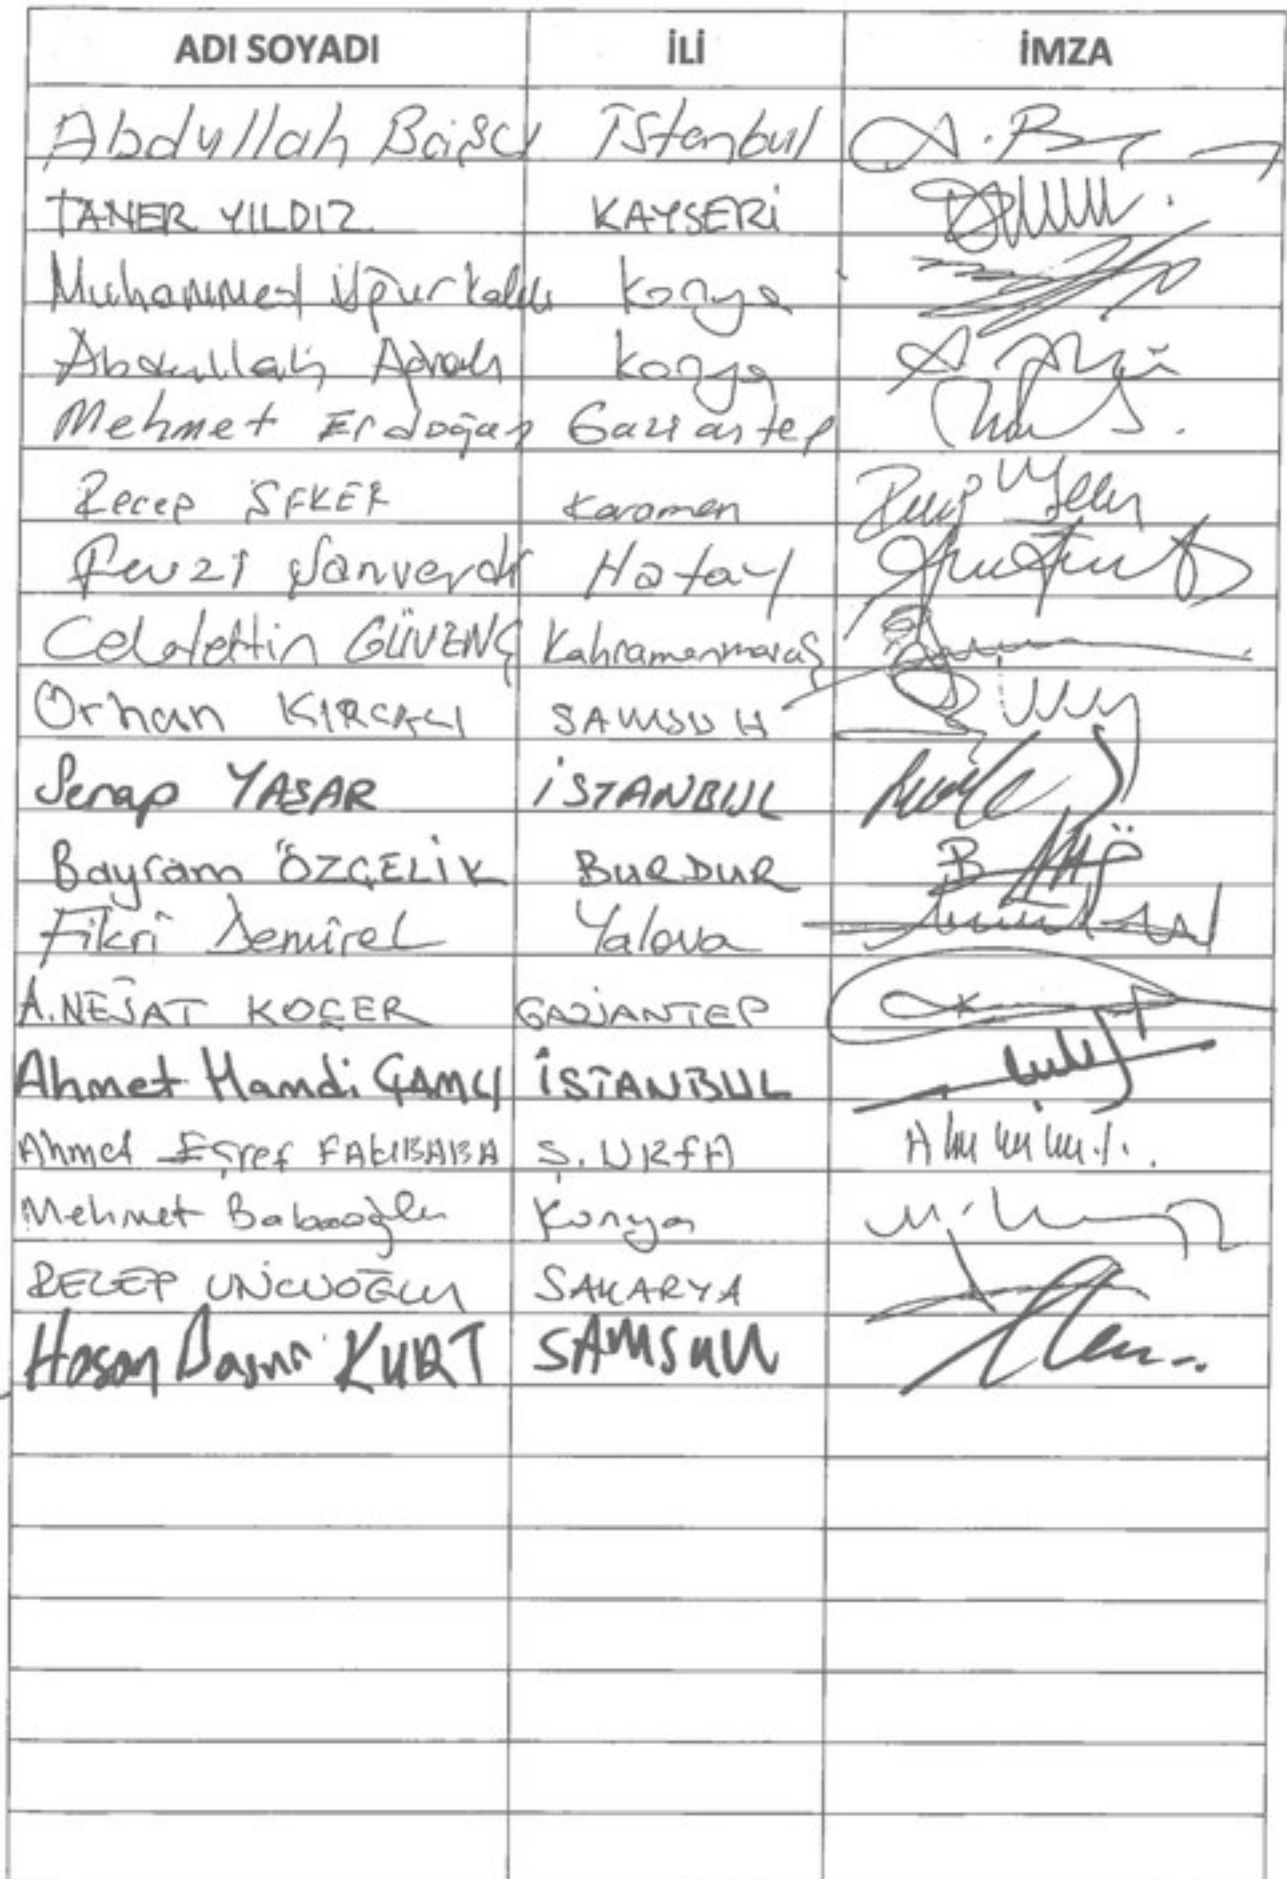 ADI SOYADI İLİ İMZA
Abdullah Başcı İstanbul A. B
TANER YILDIZ KAYSERİ
Muhammed Uğur Kaleli Konya
Abdullah Ağralı Konya
Mehmet Erdoğan Gaziantep
Recep ŞEKER Karaman
Fevzi Şanverdi Hatay
Celalettin GÜVENÇ Kahramanmaraş
Orhan KIRCALI SAMSUN
Serap YAŞAR İSTANBUL
Bayram ÖZÇELİK BURDUR
Fikri Demirel Yalova
A.NEJAT KOÇER GAZİANTEP
Ahmet Hamdi ÇAMLI İSTANBUL
Ahmet Eşref FAKIBABA Ş.URFA
Mehmet Babaoğlu Konya
RECEP UNCUOĞLU SAKARYA
Hasan Basri KURT SAMSUN